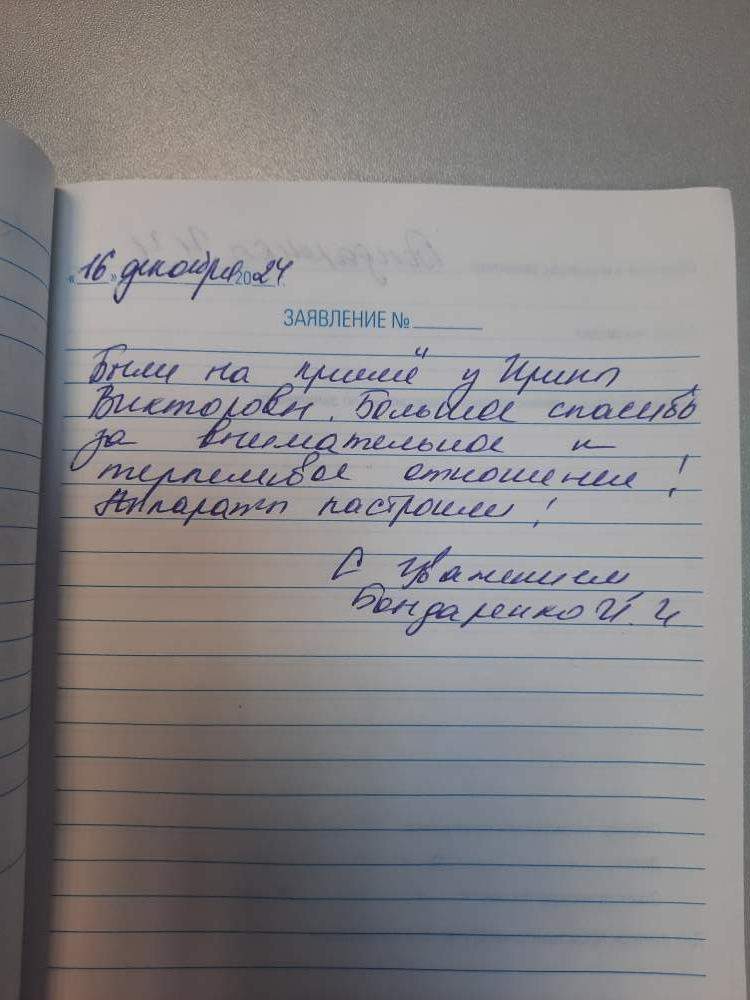 «16» декабря 2024
ЗАЯВЛЕНИЕ №
Были на приёме у Ирины
Викторовны. Большое спасибо
за внимательное и
терпеливое отношение!
Аппараты настроили!
С уважением
Бондаренко И. И